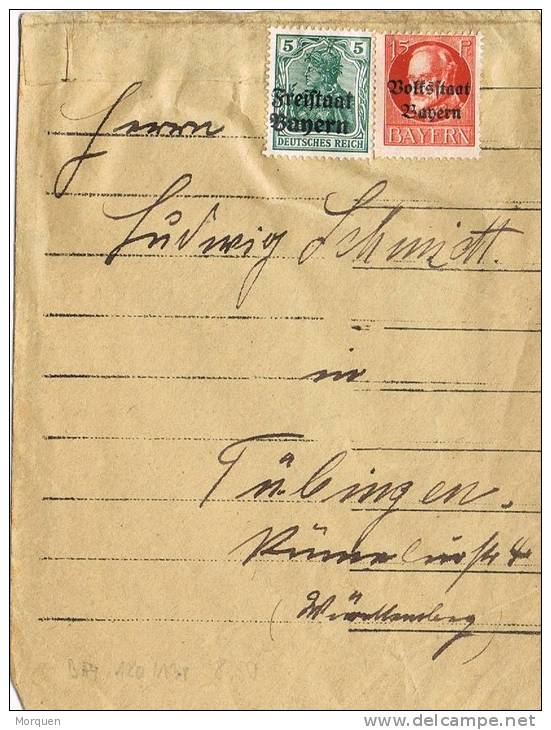 5 5
Freistaat
Bayern
DEUTSCHES REICH
15 Pf.
Volksstaat
Bayern
BAYERN
Herrn
Ludwig Schmidt.
in
Tübingen.
4
(Württemberg)
BAY. 120
Morquen
www.delcampe.net